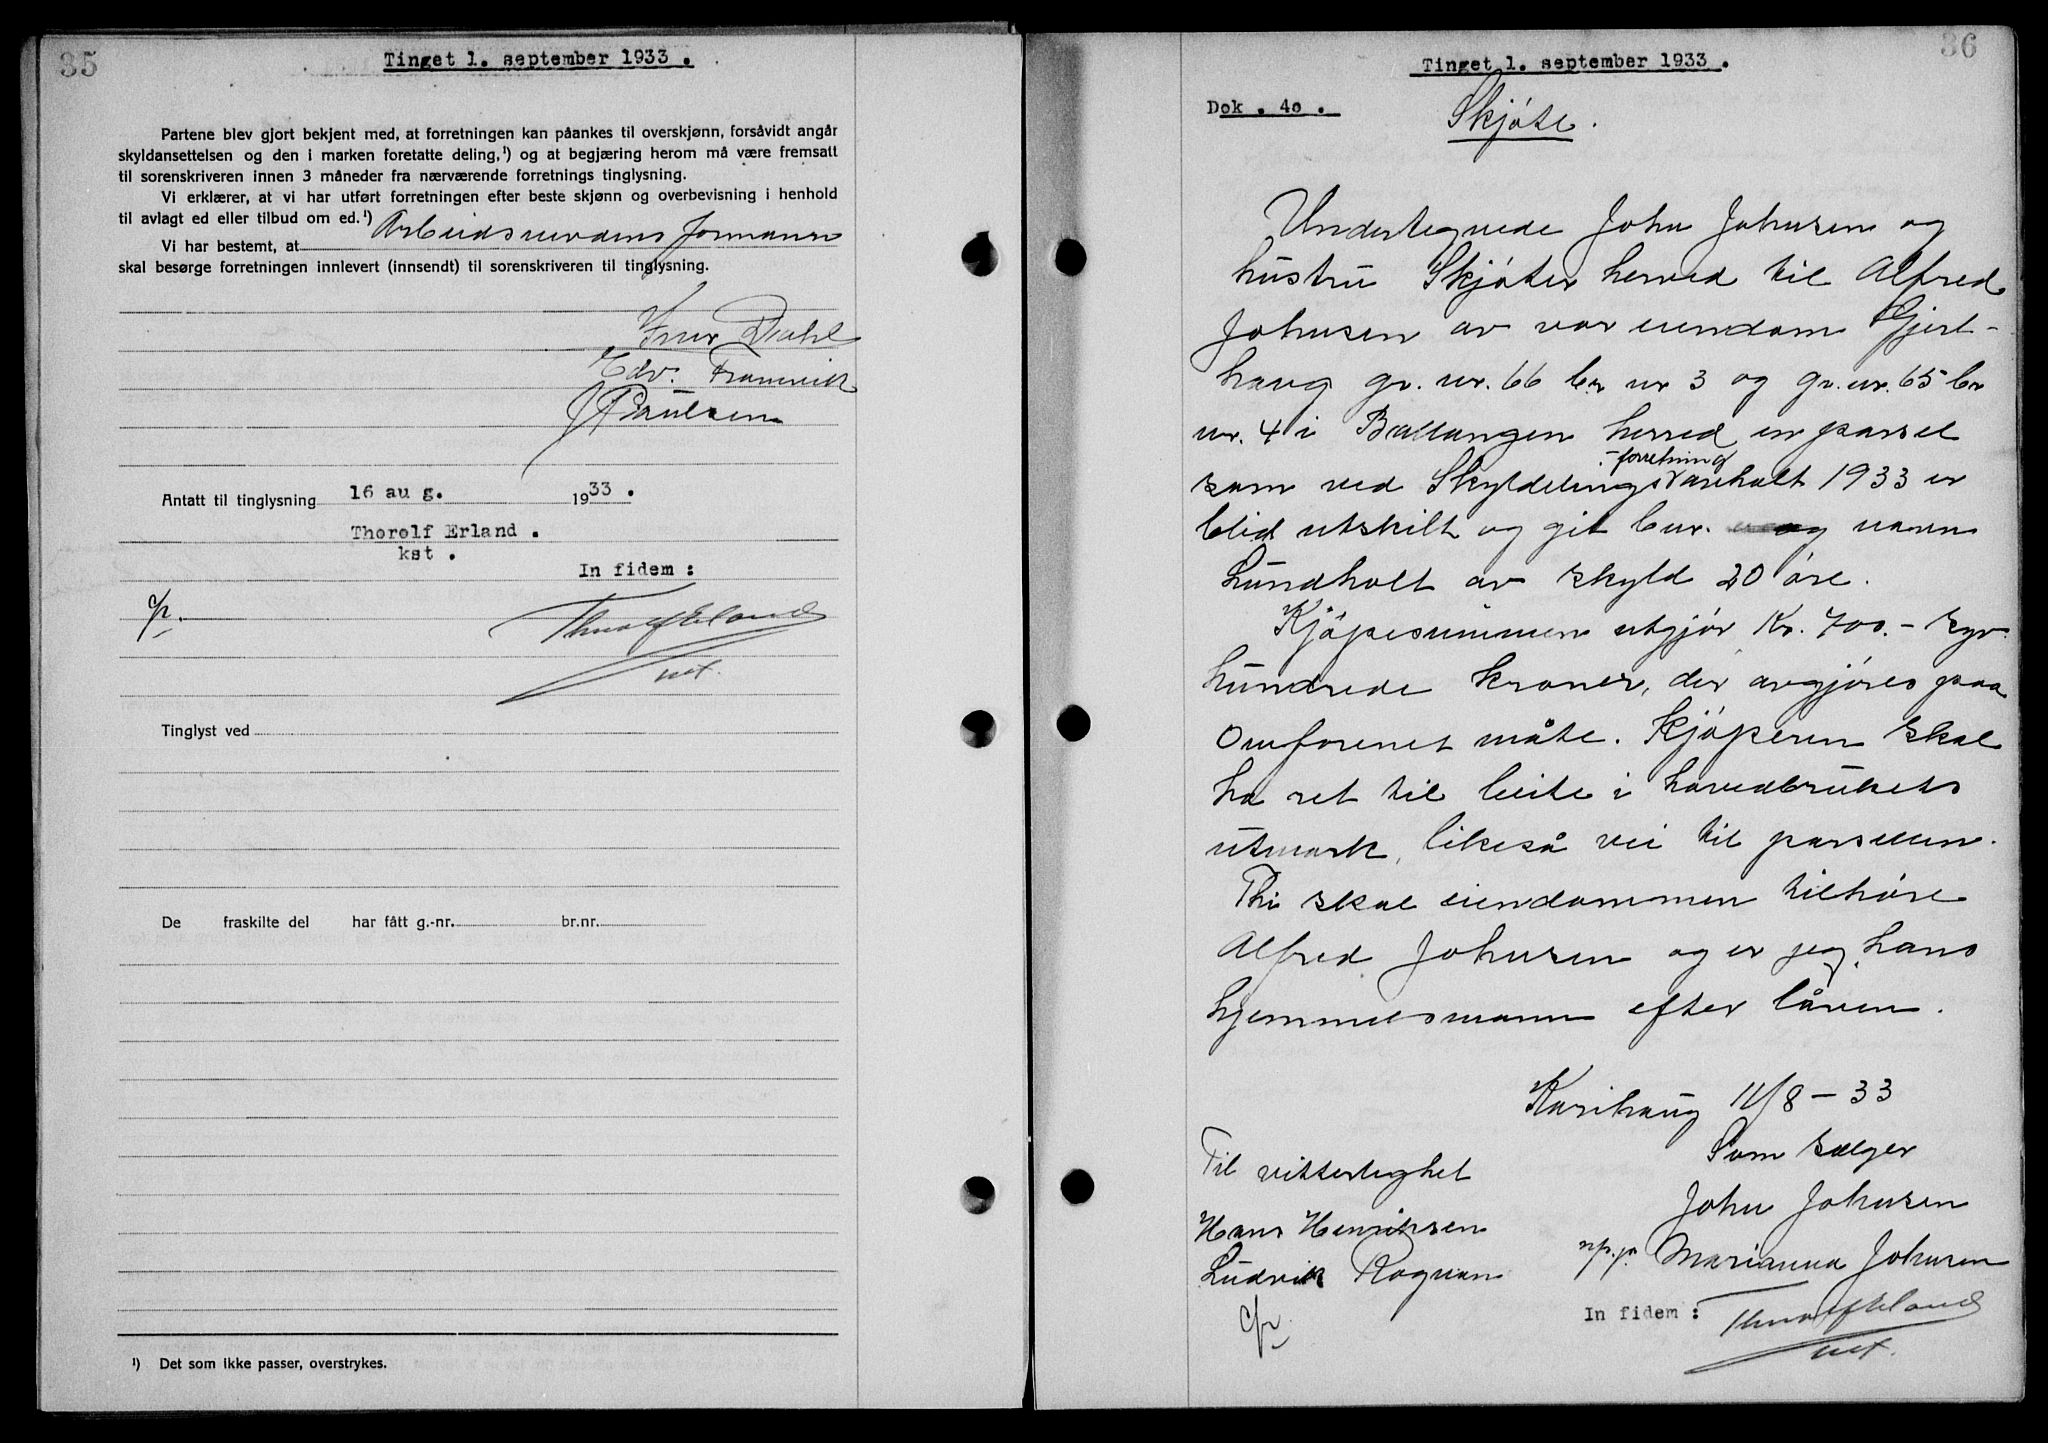 35
Tinget 1. september 1933 .
Partene blev gjort bekjent med, at forretningen kan påankes til overskjønn, forsåvidt angår
skyldansettelsen og den i marken foretatte deling,¹) og at begjæring herom må være fremsatt
til sorenskriveren innen 3 måneder fra nærværende forretnings tinglysning.
Vi erklærer, at vi har utført forretningen efter beste skjønn og overbevisning i henhold
til avlagt ed eller tilbud om ed.¹)
Vi har bestemt, at Arbeidsnevdens formann
skal besørge forretningen innlevert (innsendt) til sorenskriveren til tinglysning.
Dahl
Edv.
Paulsen
Antatt til tinglysning 16 au g. 1933 .
Thorolf Erland .
kst .
In fidem :
Thorolf Erland
kst.
Tinglyst ved
De fraskilte del har fått g.-nr. br.nr.
¹) Det som ikke passer, overstrykes.
36
Tinget 1. september 1933 .
Dok . 40 .
Skjøte.
Undertegnede John Johnsen og
hustru Skjøter herved til Alfred
Johnsen av vor eiendom Gjert-
haug gr. nr. 66 br nr 3 og gr. nr. 65 br
nr. 4 i Ballangen herred en parsel
som ved Skyldelings-forretning avholt 1933 er
blid utskilt og git bnr. og navn
Lundholt av skyld 20 øre.
Kjøpesummen utgjør Kr. 700.- syv
hundrede kroner, der avgjøres paa
omforenet måte. Kjøperen skal
ha ret til beite i hovedbrukets
utmark, likeså vei til parsellen.
Thi skal eiendommen tilhøre
Alfred Johnsen og er jeg hans
hjemmelsmann efter låven.
Karihaug 11/8 - 33
Som sælger
Til vitterlighet
John Johnsen
Hans Henriksen
m.p.p. Marianna Johnsen
Ludvik Rognan
In fidem : Thorolf Erland
kst.